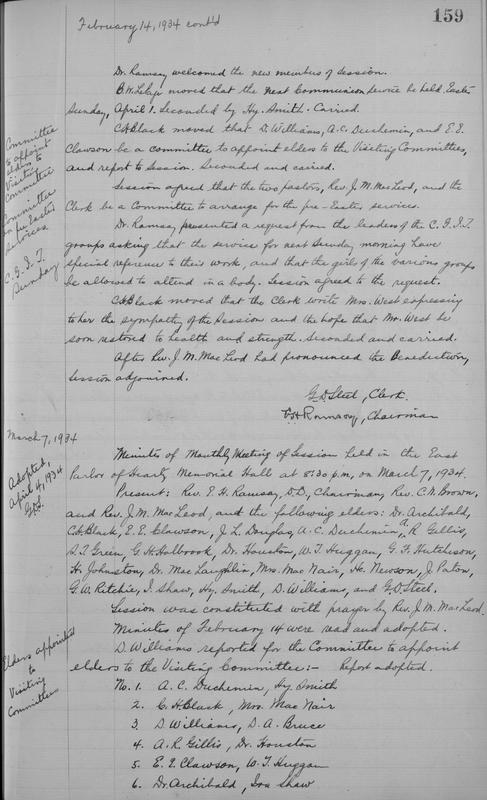 159
February, 14, 1934 cont'd
Dr. Ramsay welcomed the new members of Session.
B.W. moved that the next Communion Service be held Easter
Sunday, April 1. Seconded by Hy. Smith. Carried.
Committee to appoint elders to Visiting Committee
C.H. Black moved that D. Williams, A.C. Duchemin, and E.E.
Clawson be a committee to appoint elders to the Visiting Committees,
and report to Session. Seconded and carried.
Committee on pre Easter Services
Session agreed that the two pastors, Rev. J.M. MacLeod, and the
Clerk be a Committee to arrange for the pre-Easter services.
C.G.I.T. Sunday
Dr. Ramsay presented a request from the leaders of the C.G.I.T.
groups asking that the services for next Sunday morning have
special reference to their work, and that the girls of the various groups
be allowed to attend in a body. Session agreed to the request.
C.H. Black moved that the Clerk write Mrs. West expressing
to her the sympathy of the Session and the hope that Mr. West be
soon restored to health and strength. Seconded and carried.
After Rev. J.M. MacLeod had pronounced the Benediction,
Session adjourned.
G.D. Steel, Clerk.
E.H. Ramsay, Chairman
March 7, 1934
Adopted,
April 4, 1934
G.D.S.
Minutes of Monthly Meeting of Session held in the East
Parlor of Heartz Memorial Hall at 8:30 p.m, on March 7, 1934.
Present: Rev. E.H. Ramsay, D.D., Chairman, Rev. C.N. Brown,
and Rev. J.M. MacLeod, and the following elders: Dr. Archibald,
C.H. Black, E.E. Clawson, J.L. Douglas, A.C. Duchemin, A.R. Gillis,
S.T. Green, G.H. Holbrook, Dr. Houston, W.T. Huggan, G.F. Hutcheson,
H. Johnston, Dr. MacLaughlin, Mrs. MacNair, H. Newson, J. Paton,
G.W. Ritchie, I. Shaw, Hy. Smith, D. Williams, and G.D. Steel.
Session was constituted with prayer by Rev. J.M. MacLeod.
Minutes of February 14 were read and adopted.
Elders appointed to Visiting Committees
D. Williams reported for the Committee to appoint
elders to the Visiting Committee:- Report adopted.
No. 1. A.C. Duchemin, Hy. Smith
2. C.H. Black, Mrs. MacNair
3. D. Williams, D.A. Bruce
4. A.R. Gillis, Dr. Houston
5. E.E. Clawson, W.T. Huggan
6. Dr. Archibald, Ira Shaw